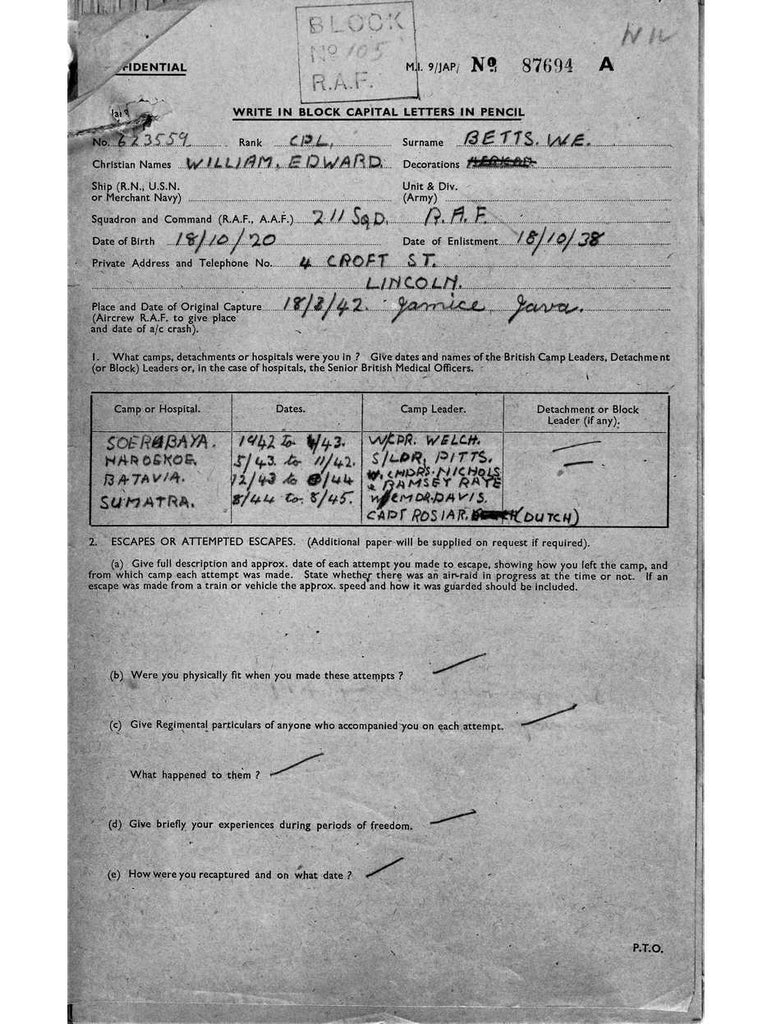 BLOCK
No 105
R.A.F.
FIDENTIAL
M.I. 9/JAP/ No 87694 A
WRITE IN BLOCK CAPITAL LETTERS IN PENCIL
No. 623559 Rank CPL. Surname BETTS. W.E.
Christian Names WILLIAM. EDWARD Decorations
Ship (R.N., U.S.N.
or Merchant Navy)
Unit & Div.
(Army)
Squadron and Command (R.A.F., A.A.F.) 211 SQD. R.A.F.
Date of Birth 18/10/20 Date of Enlistment 18/10/38
Private Address and Telephone No. 4 CROFT ST.
LINCOLN.
Place and Date of Original Capture 18/3/42. Jamice, Java.
(Aircrew R.A.F. to give place
and date of a/c crash).
1. What camps, detachments or hospitals were you in ? Give dates and names of the British Camp Leaders, Detachment
(or Block) Leaders or, in the case of hospitals, the Senior British Medical Officers.
Camp or Hospital. Dates. Camp Leader. Detachment or Block
Leader (if any).
SOERABAYA. 1942 to 4/43. W/CDR. WELCH.
HAROEKOE. 5/43. to 11/42. S/LDR. PITTS.
BATAVIA. 12/43 to /44 W. CMDRS. NICHOLS
& RAMSEY RAYE
SUMATRA. 8/44 to 8/45. W/CMDR. DAVIS.
CAPT ROSIAR. (DUTCH)
2. ESCAPES OR ATTEMPTED ESCAPES. (Additional paper will be supplied on request if required).
(a) Give full description and approx. date of each attempt you made to escape, showing how you left the camp, and
from which camp each attempt was made. State whether there was an air-raid in progress at the time or not. If an
escape was made from a train or vehicle the approx. speed and how it was guarded should be included.
(b) Were you physically fit when you made these attempts ?
(c) Give Regimental particulars of anyone who accompanied you on each attempt.
What happened to them ?
(d) Give briefly your experiences during periods of freedom.
(e) How were you recaptured and on what date ?
P.T.O.